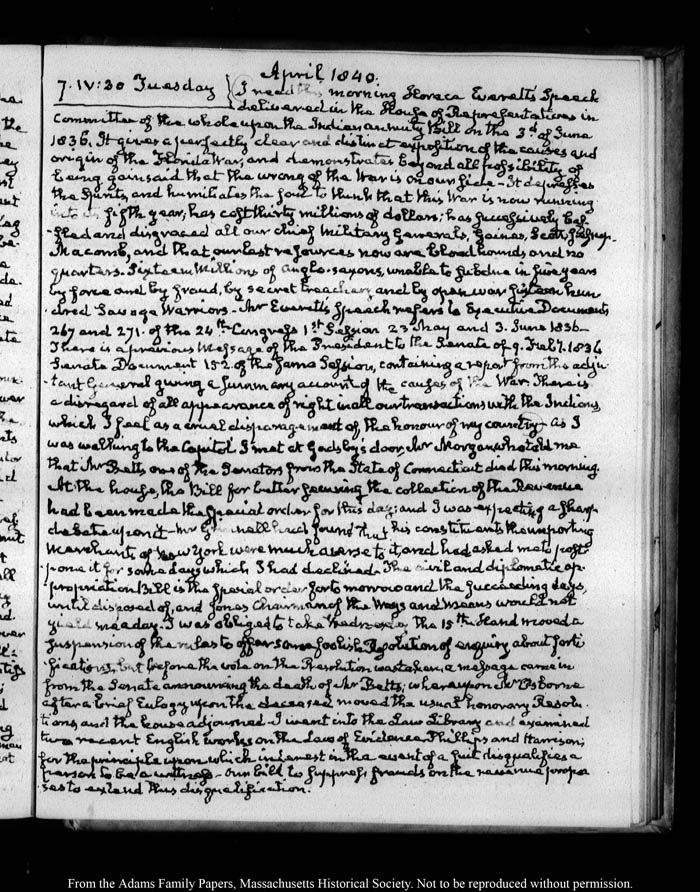 April 1840.
7. IV:30 Tuesday I read this morning Horace Everett's Speech
delivered in the House of Representatives in
Committee of the whole upon the Indian annuity Bill on the 3d of June
1836. It gives a perfectly clear and distinct exposition of the causes and
origin of the Florida War, and demonstrates beyond all possibility of
being gainsaid that the wrong of the War is on our side - It depresses
the spirits and humiliates the soul to think that this War is now running
into its fifth year, has cost thirty millions of dollars; has successively baf-
-fled and disgraced all our chief Military Generals, Gaines, Scott, Jesup,
Macomb, and that our last resources now are bloodhounds and no
quarters. Sixteen Millions of Anglo-saxons, unable to subdue in five years
by force and by fraud, by secret treachery and by open war fifteen hun
dred Savage Warriors - Mr Everett's Speech refers to Executive Documents
267 and 271. of the 24th Congress 1st Session 23 May and 3. June 1836 -
There is a previous Message of the President to the Senate of 9. Feby. 1836
Senate Document 152. of the same Session, containing a report from the adju
-tant General giving a summary account of the causes of the War. There is
a disregard of all appearance of right in all our transactions with the Indians,
which I feel as a cruel disparagement of the honour of my country - As I
was walking to the Capitol I met at Gadsby's door, Mr Morgan who told me
that Mr Betts one of the Senators from the State of Connecticut died this morning.
At the house, the Bill for better securing the collection of the Revenue
had been made the special order for this day; and I was expecting a sharp
debate upon it - Mr Grinnell had found that his constituents the importing
Merchants of New York were much averse to it, and had asked me to post
-pone it for some days which I had declined. The civil and diplomatic ap-
-propriation Bill is the special order for to morrow and the succeeding days,
until disposed of, and Jones Chairman of the Ways and Means would not
yield me a day. I was obliged to take Wednesday, the 15th. Hand moved a
suspension of the rules to offer some foolish Resolution of enquiry about forti
-fications, but before the vote on the Resolution was taken, a message came in
from the Senate announcing the death of Mr Betts; whereupon Mr Osborne
after a brief Eulogy upon the deceased moved the usual honorary Resolu-
tions, and the house adjourned - I went into the Law Library and examined
two recent English works on the Law of Evidence, Phillips and Harrison,
for the principle upon which interest in the event of a suit disqualifies a
person to be a witness - Our bill to suppress frauds on the revenue propo
ses to extend this disqualification.
From the Adams Family Papers, Massachusetts Historical Society. Not to be reproduced without permission.